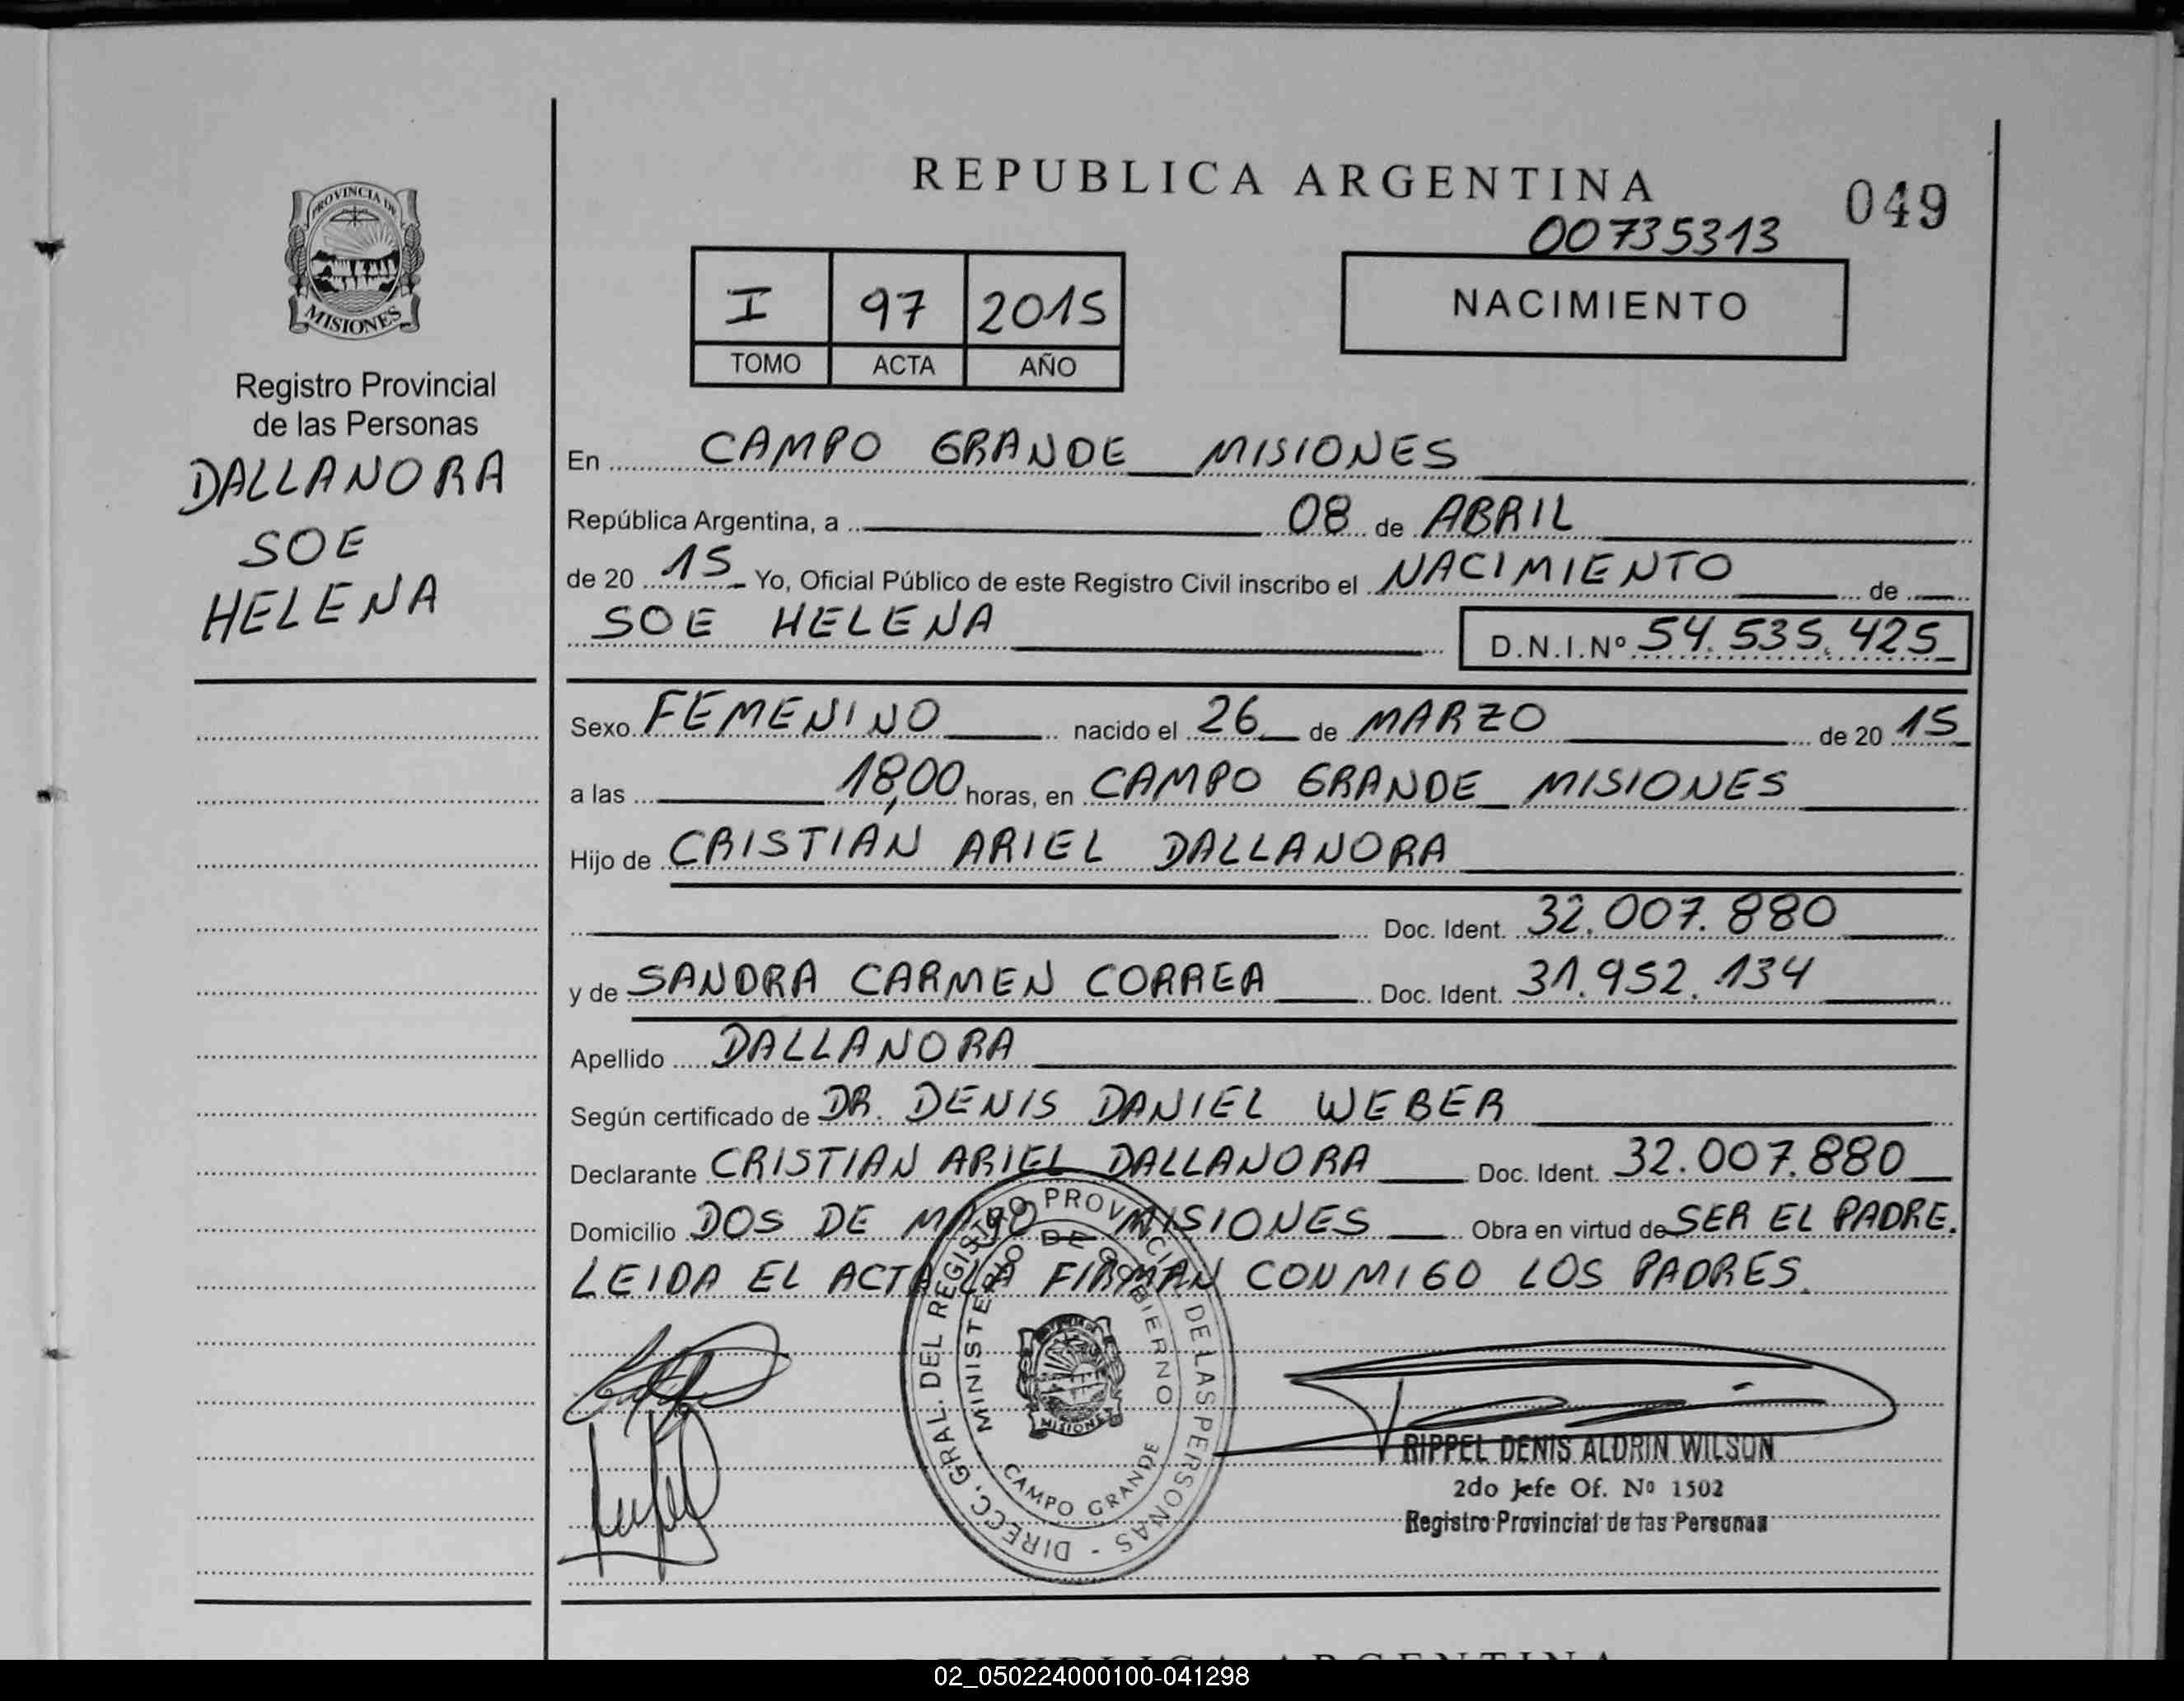 REPUBLICA ARGENTINA
049
00735313
PROVINCIA DE
MISIONES
I 97 2015
TOMO ACTA AÑO
NACIMIENTO
Registro Provincial
de las Personas
DALLANORA
SOE
HELENA
En CAMPO GRANDE MISIONES
República Argentina, a 08 de ABRIL
de 20 15 Yo, Oficial Público de este Registro Civil inscribo el NACIMIENTO de
SOE HELENA D.N.I.Nº 54.535.425
Sexo FEMENINO nacido el 26 de MARZO de 20 15
a las 18,00 horas, en CAMPO GRANDE MISIONES
Hijo de CRISTIAN ARIEL DALLANORA
Doc. Ident. 32.007.880
y de SANDRA CARMEN CORREA Doc. Ident. 31.952.134
Apellido DALLANORA
Según certificado de DR. DENIS DANIEL WEBER
Declarante CRISTIAN ARIEL DALLANORA Doc. Ident. 32.007.880
Domicilio DOS DE MAYO MISIONES Obra en virtud de SER EL PADRE.
LEIDA EL ACTA LA FIRMAN CONMIGO LOS PADRES.
DIRECC. GRAL. DEL REGISTRO PROVINCIAL DE LAS PERSONAS -
MINISTERIO DE GOBIERNO
MISIONES
CAMPO GRANDE
RIPPEL DENIS ALDRIN WILSON
2do Jefe Of. Nº 1502
Registro Provincial de las Personas
REPUBLICA ARGENTINA
02_050224000100-041298